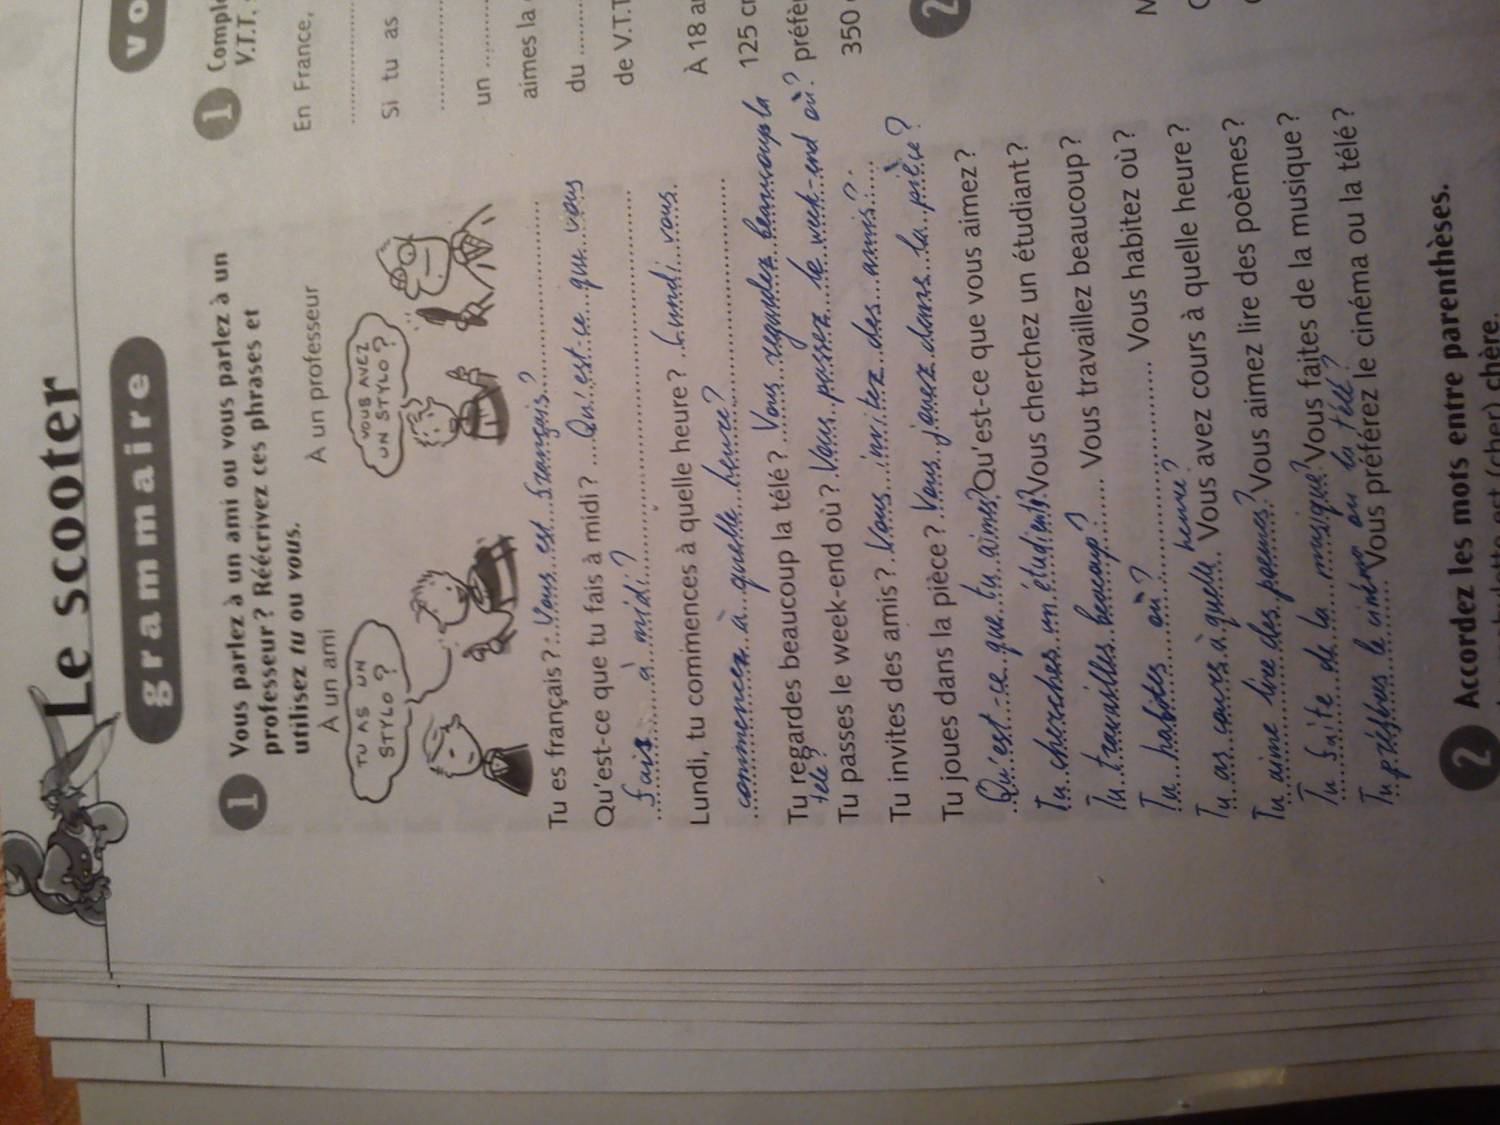 Le scooter
grammaire
1 Vous parlez à un ami ou vous parlez à un
professeur ? Réécrivez ces phrases et
utilisez tu ou vous.
À un ami À un professeur
TU AS UN
STYLO ?
VOUS AVEZ
UN STYLO ?
Tu es français ? Vous est français ?
Qu'est-ce que tu fais à midi ? Qu'est-ce que vous
fais à midi ?
Lundi, tu commences à quelle heure ? Lundi vous
commencez à quelle heure ?
Tu regardes beaucoup la télé ? Vous regardez beaucoup la
télé ?
Tu passes le week-end où ? Vous passez le week-end où ?
Tu invites des amis ? Vous invitez des amis ?
Tu joues dans la pièce ? Vous jouez dans la pièce ?
Qu'est-ce que tu aimes ? Qu'est-ce que vous aimez ?
Tu cherches un étudiant ? Vous cherchez un étudiant ?
Tu travailles beaucoup ? Vous travaillez beaucoup ?
Tu habites où ? Vous habitez où ?
Tu as cours à quelle heure ? Vous avez cours à quelle heure ?
Tu aime lire des poemes ? Vous aimez lire des poèmes ?
Tu faite de la musique ? Vous faites de la musique ?
Tu préfères le cinéma ou la télé ? Vous préférez le cinéma ou la télé ?
2 Accordez les mots entre parenthèses.
est (cher) chère.
vo
1 Complé
V.T.T.
En France,
Si tu as
un
aimes la
du
de V.T.T
À 18 a
125 c
préfèr
350
2